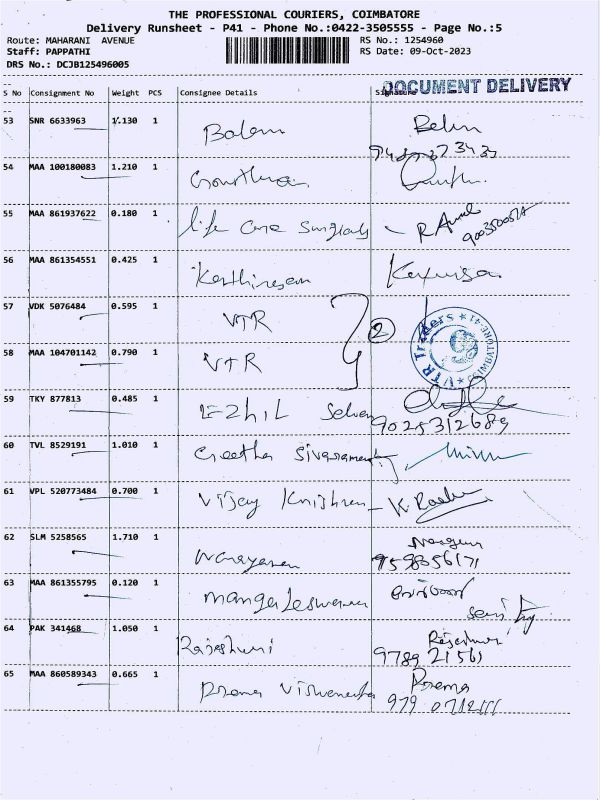 THE PROFESSIONAL COURIERS, COIMBATORE
Delivery Runsheet - P41 - Phone No.:0422-3505555 - Page No.:5
Route: MAHARANI AVENUE
RS No.: 1254960
Staff: PAPPATHI
RS Date: 09-Oct-2023
DRS No.: DCJB125496005
DOCUMENT DELIVERY
S No Consignment No Weight PCS Consignee Details Signature
53 SNR 6633963 1.130 1
54 MAA 100180083 1.210 1
55 MAA 861937622 0.180 1 Life Care Surgicals
56 MAA 861354551 0.425 1 Karthikesan
57 VDK 5076484 0.595 1 VTR
2
58 MAA 104701142 0.790 1 VTR
VTR Traders ★ COIMBATORE-41 ★
59 TKY 877813 0.485 1 EZHIL Selvan
9025312689
60 TVL 8529191 1.010 1 Geetha
61 VPL 520773484 0.700 1 Vijay Krishnan
62 SLM 5258565 1.710 1 Narayanan
9598356171
63 MAA 861355795 0.120 1 Mangaleswaran
64 PAK 341468 1.050 1 Rajeshwari Rajeshwari
9789 21561
65 MAA 860589343 0.665 1 Prema Viswanatha Prema